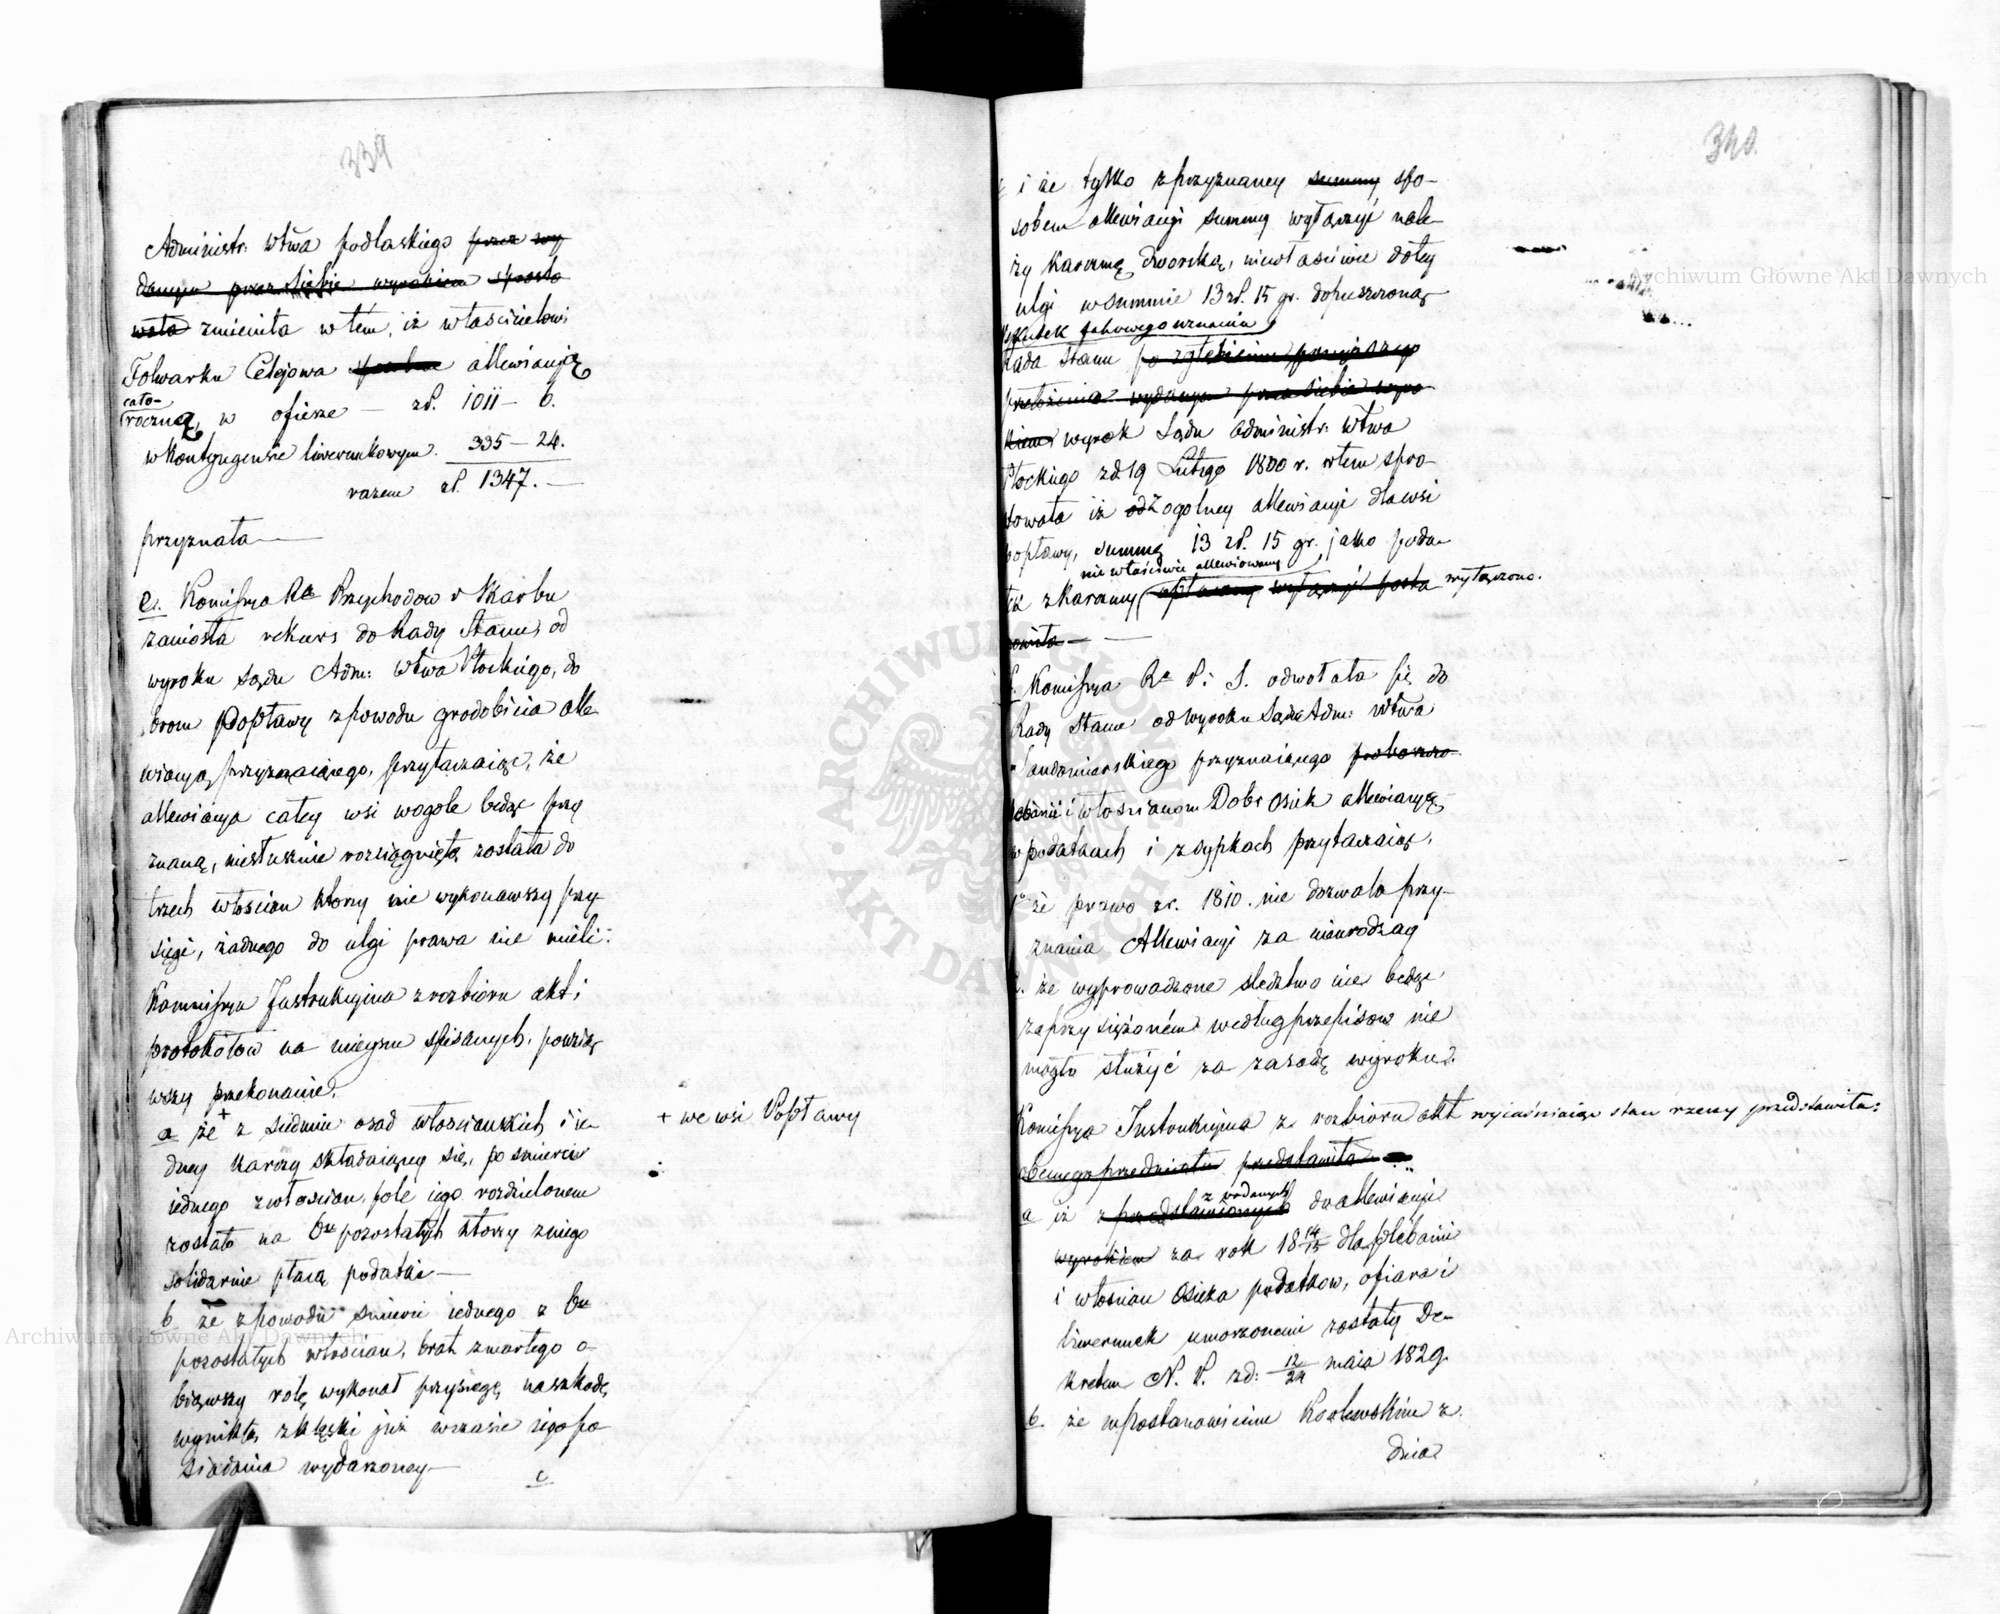 339
Administr: Wtwa podlaskiego przez wy
danym przez siebie wyrokiem sprosto
wała zmieniła w tém, iż właścicielowi
Folwarku Celejowa allewiacyją
cało-
roczną, w ofierze — zł. 1011 — 6.
w kontyngensie liwerunkowym. 335 — 24.
razem zł. 1347. —
przyznała —
e. Kommissya Rª Przychodow i Skarbu
zaniosła rekurs do Rady Stanu, od
wyroku Sądu Adm: Wtwa Płockiego, do
brom Popławy z powodu gradobicia alle
wiacyą przyznaiącego, przytaczaiąc, że
allewiacya całey wsi wogóle będąc przy
znaną, niesłusznie rozciągnięta została do
trzech włościan ktorzy nie wykonawszy przy-
sięgi, żadnego do ulgi prawa nie mieli:
Kommissya Instrukcyina z rozbioru akt i
protokołow na mieyscu spisanych, powzią
wszy przekonanie.
+
a że z siedmiu osad włościańskich i ie-
+ we wsi Popławy
dney karczmy składaiącey się, po śmierci
iednego z włościan, pole iego rozdzielonem
zostało na 6u pozostałych ktorzy z niego
solidarnie płacą podatki —
b. że z powodu śmierci iednego z 6u
pozostałych włościan, brat zmarłego o-
biąwszy rolę wykonał przysięgę na szkodę
wynikłą z klęski już w czasie iego po-
siadania wydarzoney —
c
340.
i że tylko z przyznaney summy spo-
sobem allewiacyi summy wyłączyć nale-
ży karczmę dworską, niewłaściwie do tey
ulgi w summie 13 zł. 15 gr. dopuszczoną
Rada Stanu po zgłębieniu
przełożenia wydanym przez siebie wyro
kiem wyrok Sądu administr: Wtwa
Płockiego z d 19 Lutego 1830 r. w tem spro-
stowała iż od z ogolney allewiacyi dla wsi
Popławy, summę 13 zł. 15 gr. jako poda-
nie właściwie allewiowany
tek z karczmy wyłączono.
f. Kommissya Rª P. i S. odwołała się do
Rady Stanu od wyroku Sądu Adm: Wtwa
Sandomierskiego przyznaiącego proboszczo
i włościanom Dobr Osiek allewiacyą
w podatkach i zsypkach przytaczaiąc,
1º że prawo z r. 1810. nie dozwala przy-
znania Allewiacyi za nieurodzay
2. że wyprowadzone śledztwo nie będąc
zaprzysiężoném według przepisow nie
mogło służyć za zasadę wyroku.
Kommissya Instrukcyina z rozbioru akt wyiaśniaiąc stan rzeczy przedstawiła:
obecnego przedmiotu przedstawiła
z podanych
a iż z przedstawionych do allewiacyi
wyrokiem za rok 18 14/15 dla plebanii
i włościan Osieka podatkow, ofiara i
liwerunek umorzonemi zostały De-
kretem N. P. z d: 12/24 maia 1829.
b. że w postanowieniu Krolewskim z
dnia
Archiwum Główne Akt Dawnych
Archiwum Główne Akt Dawnych
ARCHIWUM GŁÓWNE · AKT DAWNYCH ·